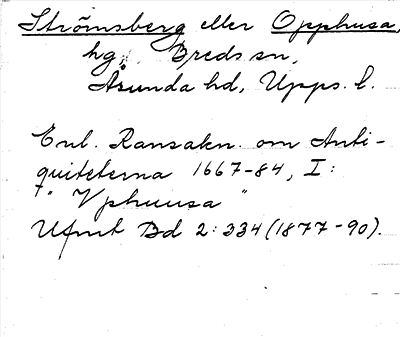 Strömsberg eller Opphusa,
hg, Breds sn,
Åsunda hd, Upps. l.
Enl. Ransakn. om Anti-
quiteterna 1667-84, I:
"Vphuusa"
Ufmt Bd 2:334 (1877-90).